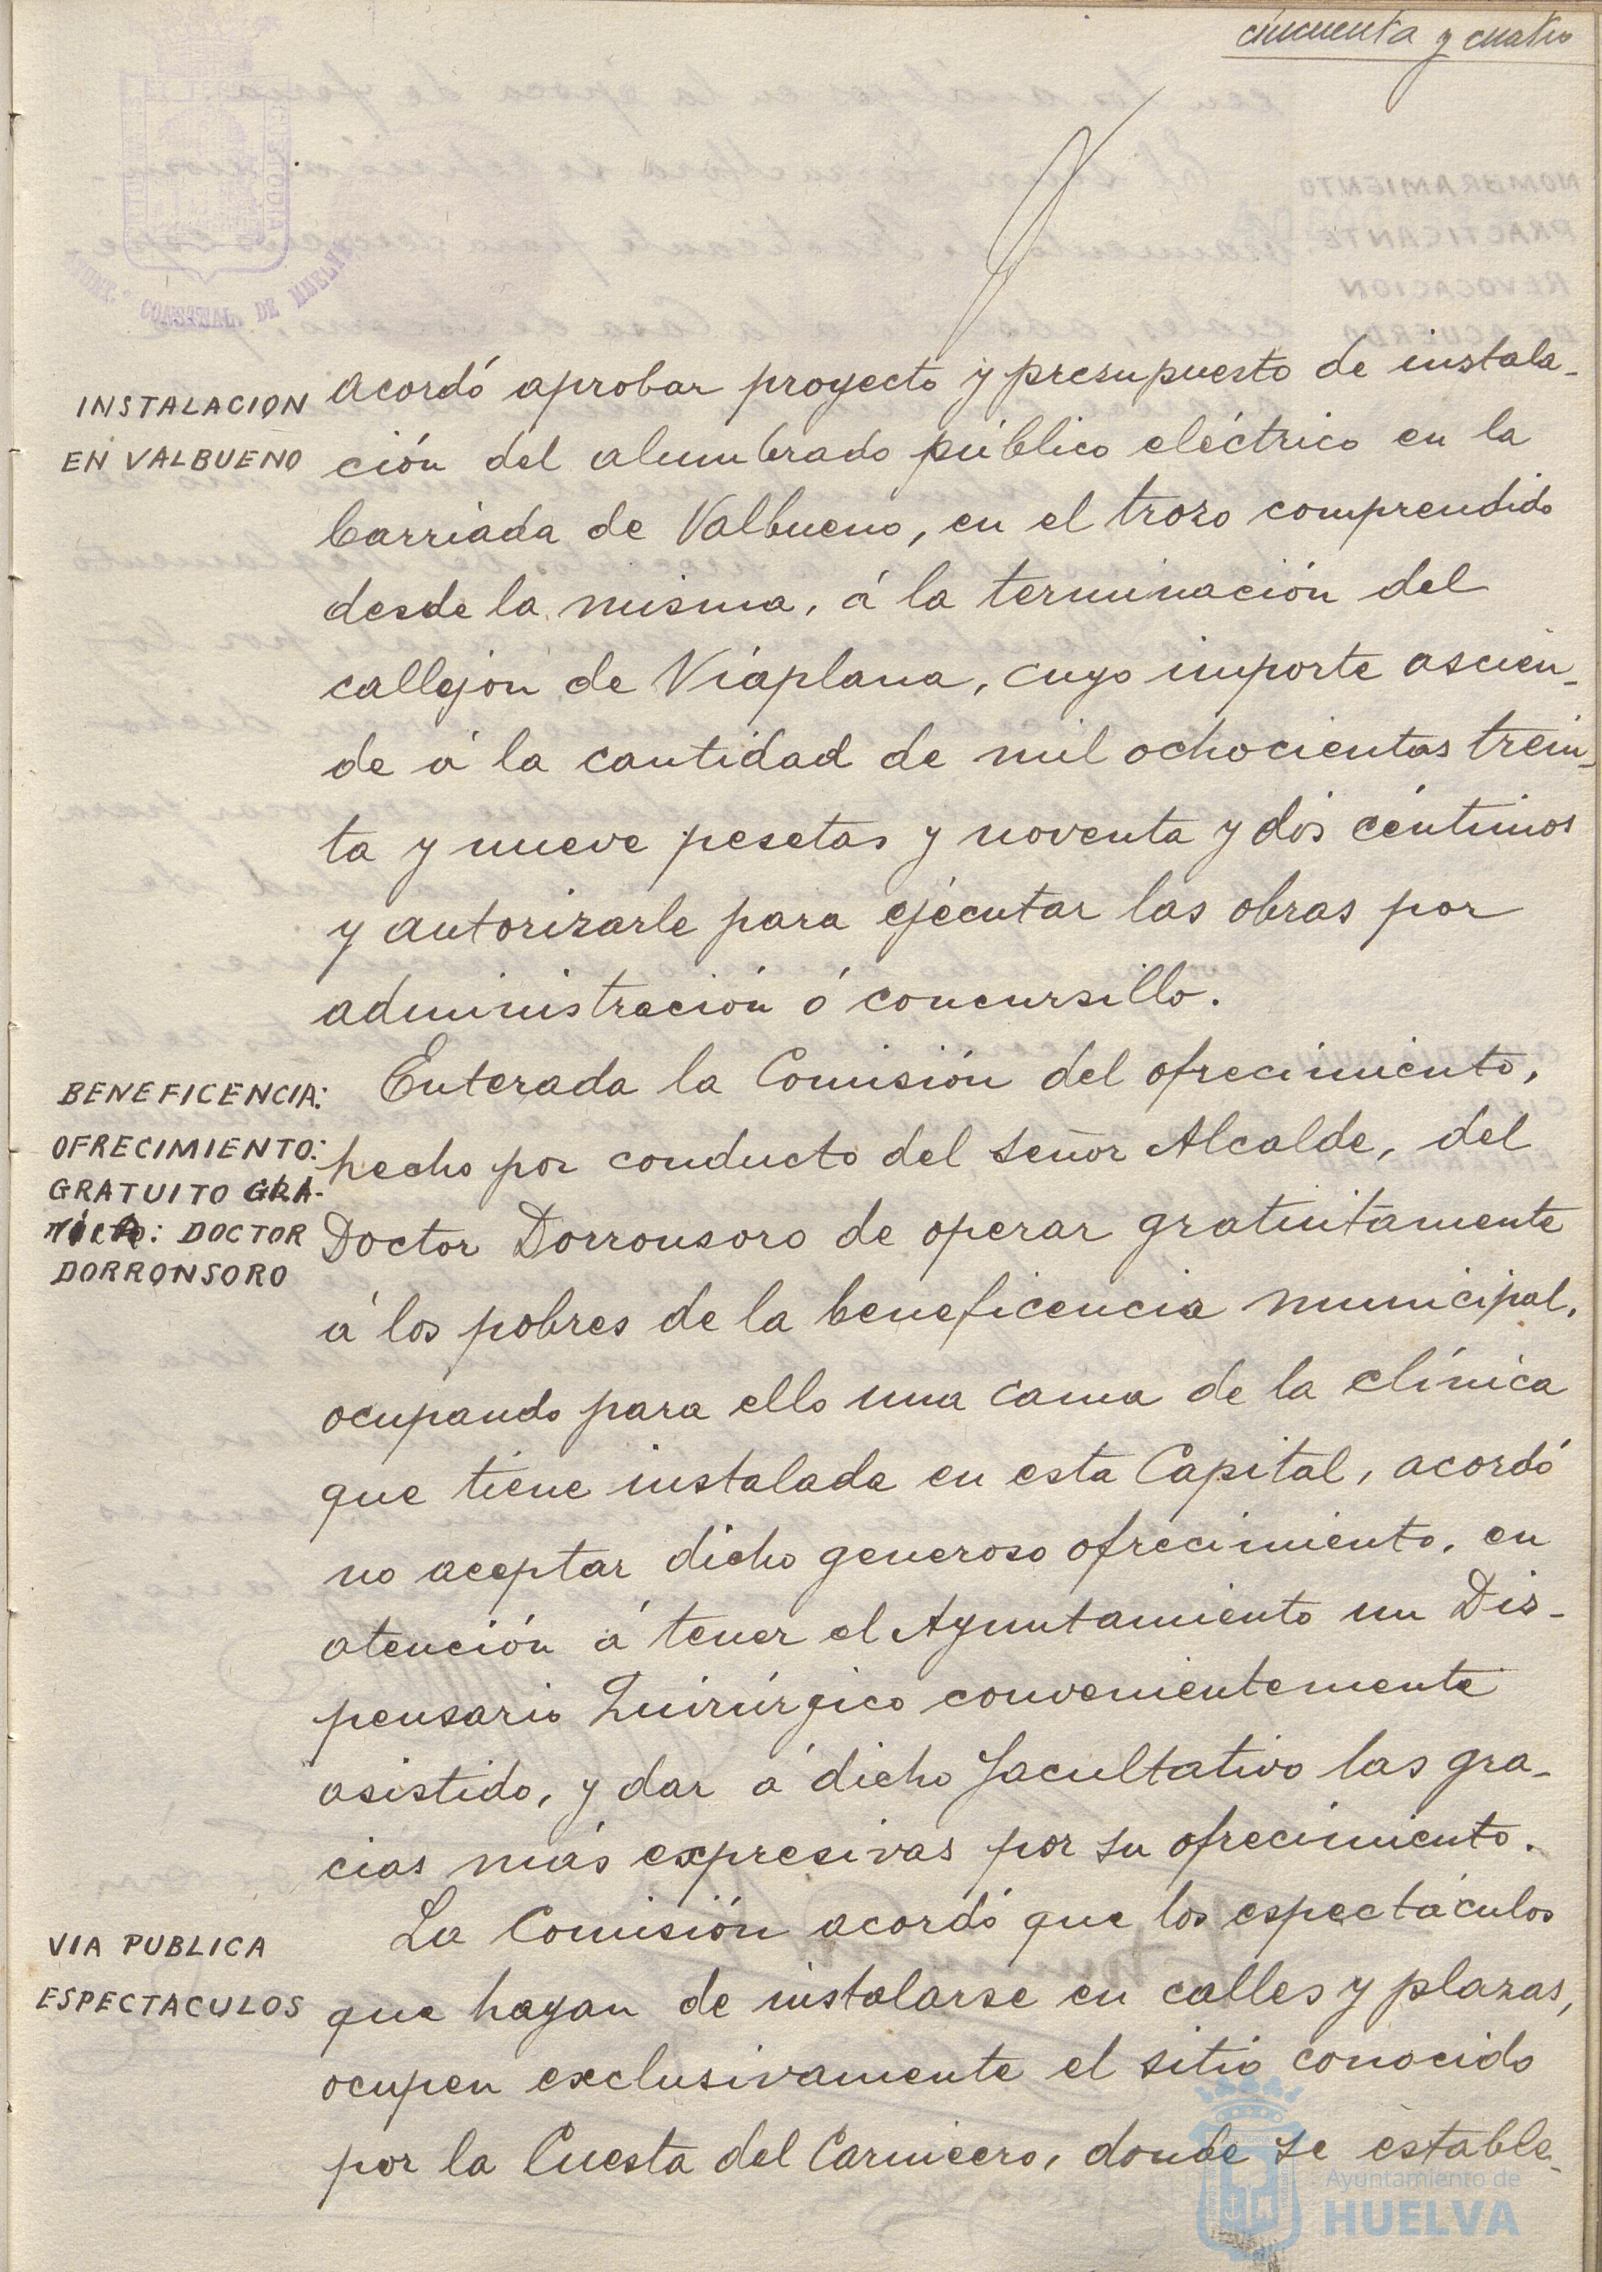 cincuenta y cuatro
AYUNT.º CONSTNAL. DE HUELVA
INSTALACION
EN VALBUENO
acordó aprobar proyecto y presupuesto de instala-
ción del alumbrado público eléctrico en la
barriada de Valbueno, en el trozo comprendido
desde la misma, á la terminación del
callejón de Viaplana, cuyo importe ascien-
de á la cantidad de mil ochocientas trein-
ta y nueve pesetas y noventa y dós céntimos
y autorizarle para ejecutar las obras por
administración ó concursillo.
BENEFICENCIA:
OFRECIMIENTO:
GRATUITO GRA-
: DOCTOR
DORRONSORO
Enterada la Comisión del ofrecimiento,
hecho por conducto del señor Alcalde, del
Doctor Dorronsoro de operar gratuitamente
á los pobres de la beneficencia municipal,
ocupando para ello una cama de la clínica
que tiene instalada en esta Capital, acordó
no aceptar dicho generoso ofrecimiento, en
atención á tener el Ayuntamiento un Dis-
pensario Quirúrgico convenientemente
asistido, y dar á dicho facultativo las gra-
cias más expresivas por su ofrecimiento.
VIA PUBLICA
ESPECTACULOS
La Comisión acordó que los espectáculos
que hayan de instalarse en calles y plazas,
ocupen exclusivamente el sitio conocido
por la Cuesta del Carnicero, donde se estable-
Ayuntamiento de
HUELVA